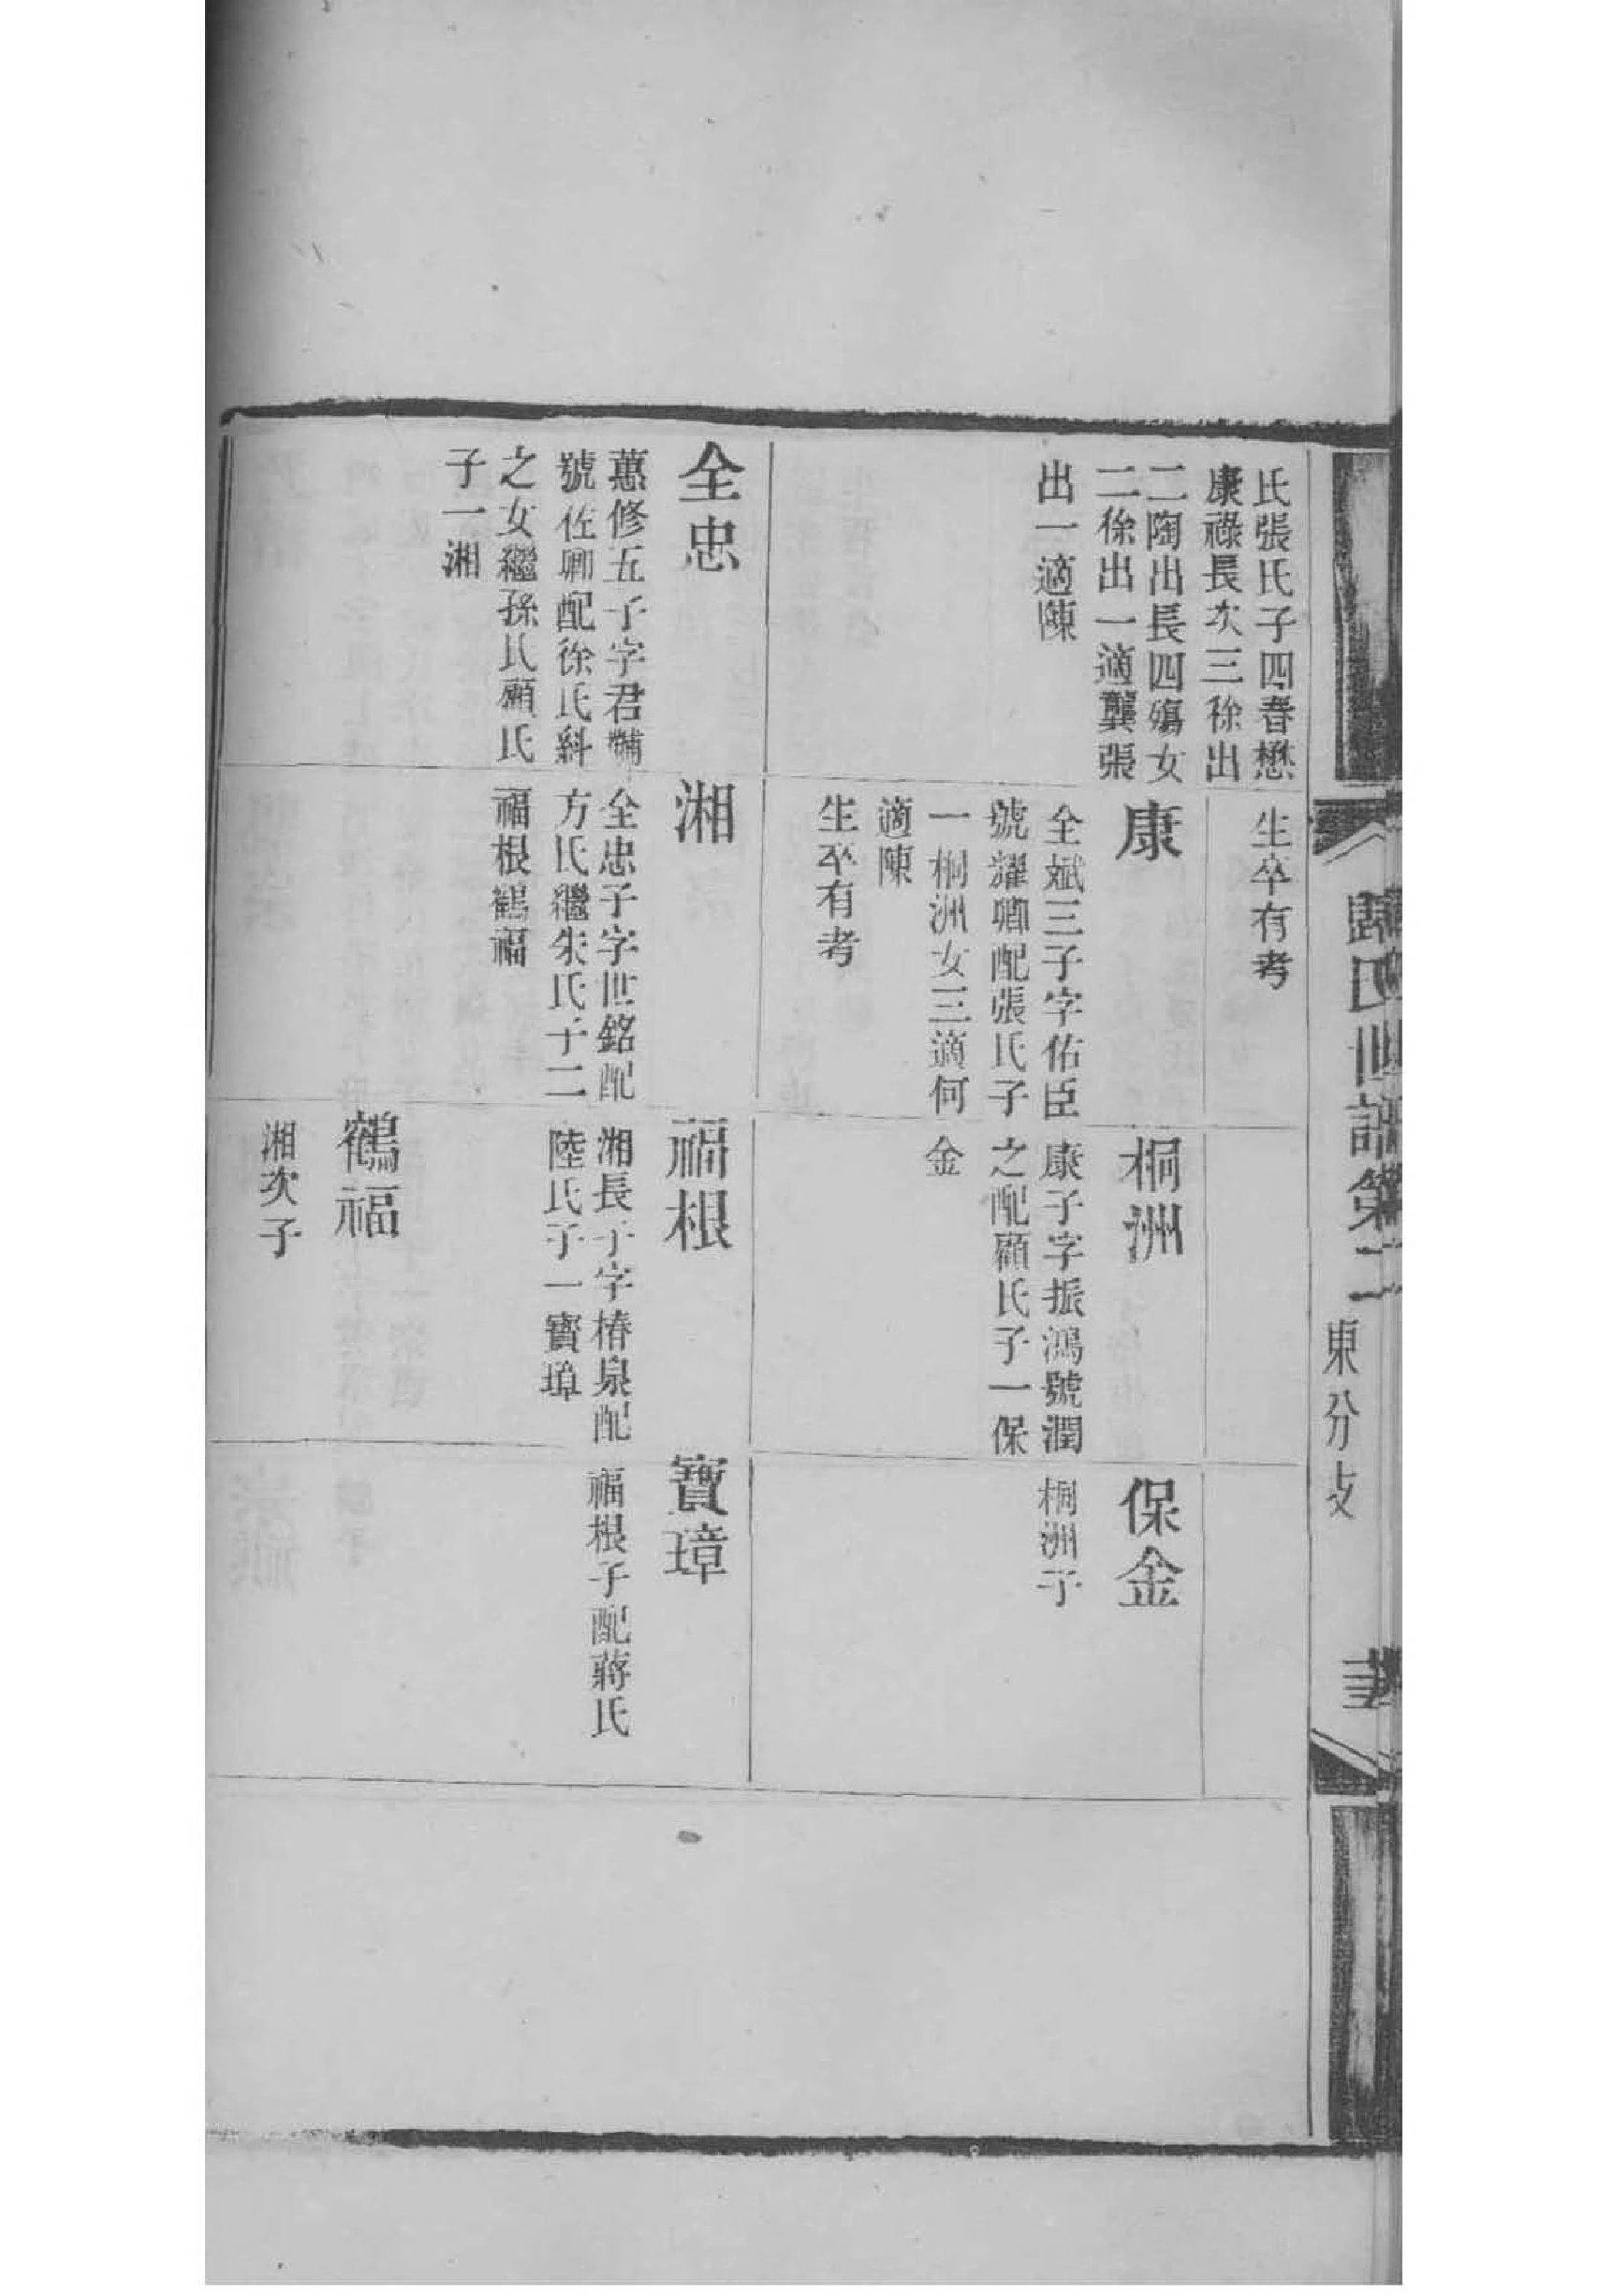 歸氏世譜第二
東分支
氏張氏子四春懋
康祿長次三徐出
二陶出長四殤女
二徐出一適龔張
出一適陳
生卒有考
康
全斌三子字佑臣
號耀卿配張氏子
一桐洲女三適何
適陳
生卒有考
桐洲
康子字振鴻號潤
之配顧氏子一保
金
保金
桐洲子
全忠
蕙修五子字君黼
號佐卿配徐氏糾
之女繼孫氏顧氏
子一湘
湘
全忠子字世銘配
方氏繼朱氏子二
福根鶴福
福根
湘長子字椿泉配
陸氏子一寶璋
寶璋
福根子配蔣氏
鶴福
湘次子